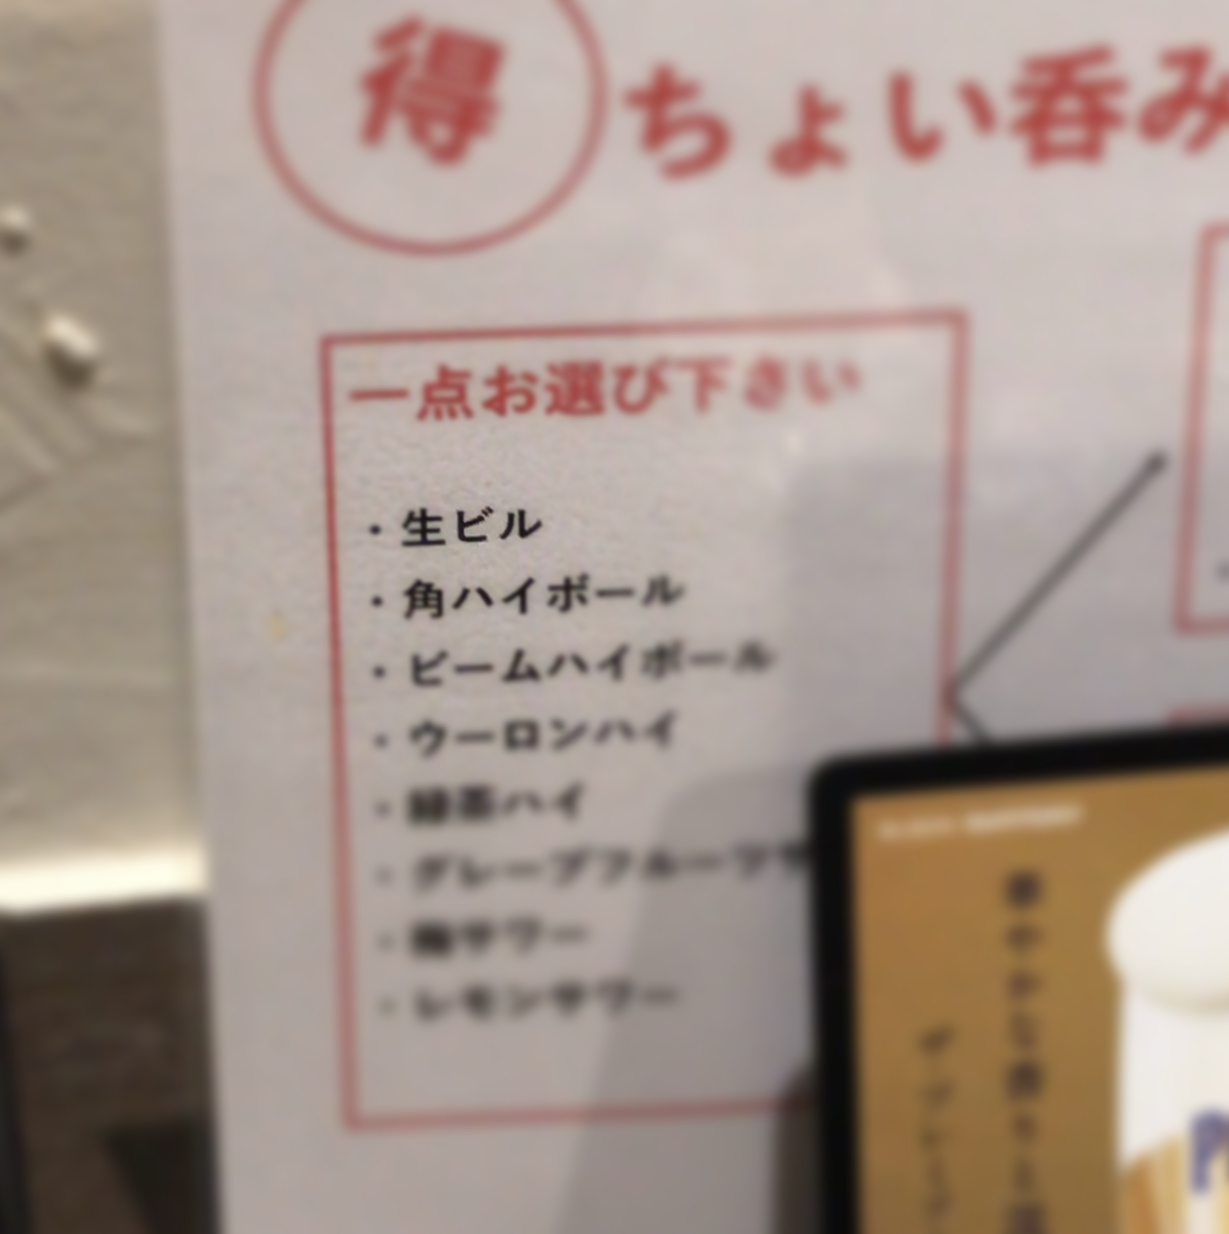 得 ちょい呑み
一点お選び下さい
・生ビル
・角ハイボール
・ビームハイボール
・ウーロンハイ
・緑茶ハイ
・グレープフルーツサ
・梅サワー
・レモンサワー
華やかな香り